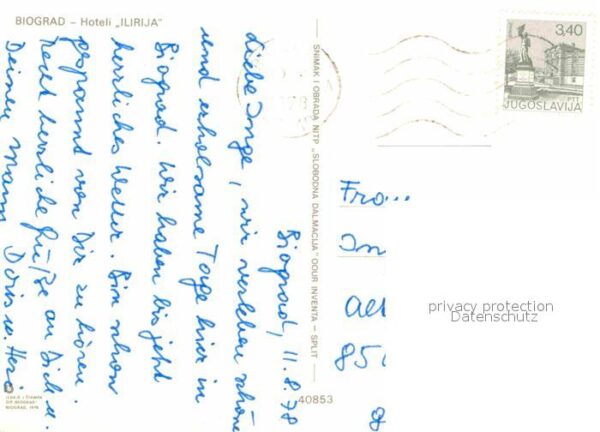 BIOGRAD – Hoteli „ILIRIJA"
Biograd, 11.8.78
Liebe Inge, wir verleben schöne
und erholsame Tage hier in
Biograd. Wir haben bis jetzt
herrliches Wetter. Bin schon
gespannt von Dir zu hören.
Recht herzliche Grüße an Dich u.
Deinen Mann Doris u.
SNIMAK I OBRADA NITP „SLOBODNA DALMACIJA" OOUR INVENTA – SPLIT
40853
3,40
PTT
JUGOSLAVIJA
Fra...
In
85
privacy protection
Datenschutz
BIOGRAD, 1978